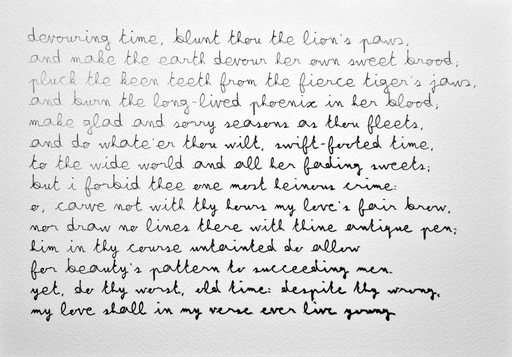 devouring time, blunt thou the lion's paws,
and make the earth devour her own sweet brood;
pluck the keen teeth from the fierce tiger's jaws,
and burn the long-lived phoenix in her blood;
make glad and sorry seasons as thou fleets,
and do whate'er thou wilt, swift-footed time,
to the wide world and all her fading sweets;
but i forbid thee one most heinous crime:
o, carve not with thy hours my love's fair brow,
nor draw no lines there with thine antique pen;
him in thy course untainted do allow
for beauty's pattern to succeeding men.
yet, do thy worst, old time: despite thy wrong,
my love shall in my verse ever live young